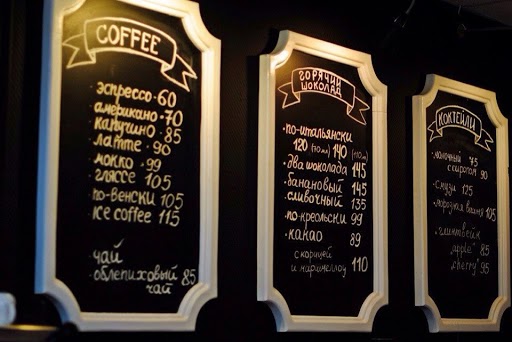 COFFEE
эспрессо 60
американо 70
капучино 85
латте 90
мокко 99
глясе 105
по-венски 105
ice coffee 115
чай
облепиховый 85
чай
ГОРЯЧИЙ
ШОКОЛАД
по-итальянски
120 140
два шоколада 145
банановый 145
сливочный 135
по-креольски 99
какао 89
с корицей
и маршмеллоу 110
КОКТЕЙЛИ
молочный 75
с сиропом 90
смузи 125
морозная вишня 105
глинтвейн
"apple" 85
"cherry" 95